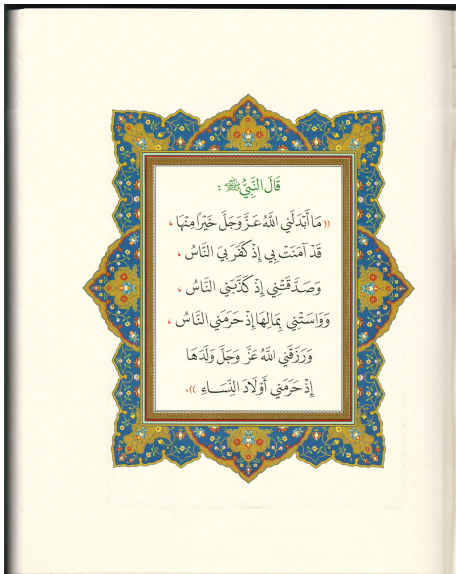 قَالَ النَّبِيُّ ﷺ :
(( مَا أَبْدَلَنِي اللَّهُ عَزَّ وَجَلَّ خَيْرًا مِنْهَا ،
قَدْ آمَنَتْ بِي إِذْ كَفَرَ بِيَ النَّاسُ ،
وَصَدَّقَتْنِي إِذْ كَذَّبَنِي النَّاسُ ،
وَوَاسَتْنِي بِمَالِهَا إِذْ حَرَمَنِي النَّاسُ ،
وَرَزَقَنِي اللَّهُ عَزَّ وَجَلَّ وَلَدَهَا
إِذْ حَرَمَنِي أَوْلَادَ النِّسَاءِ )).